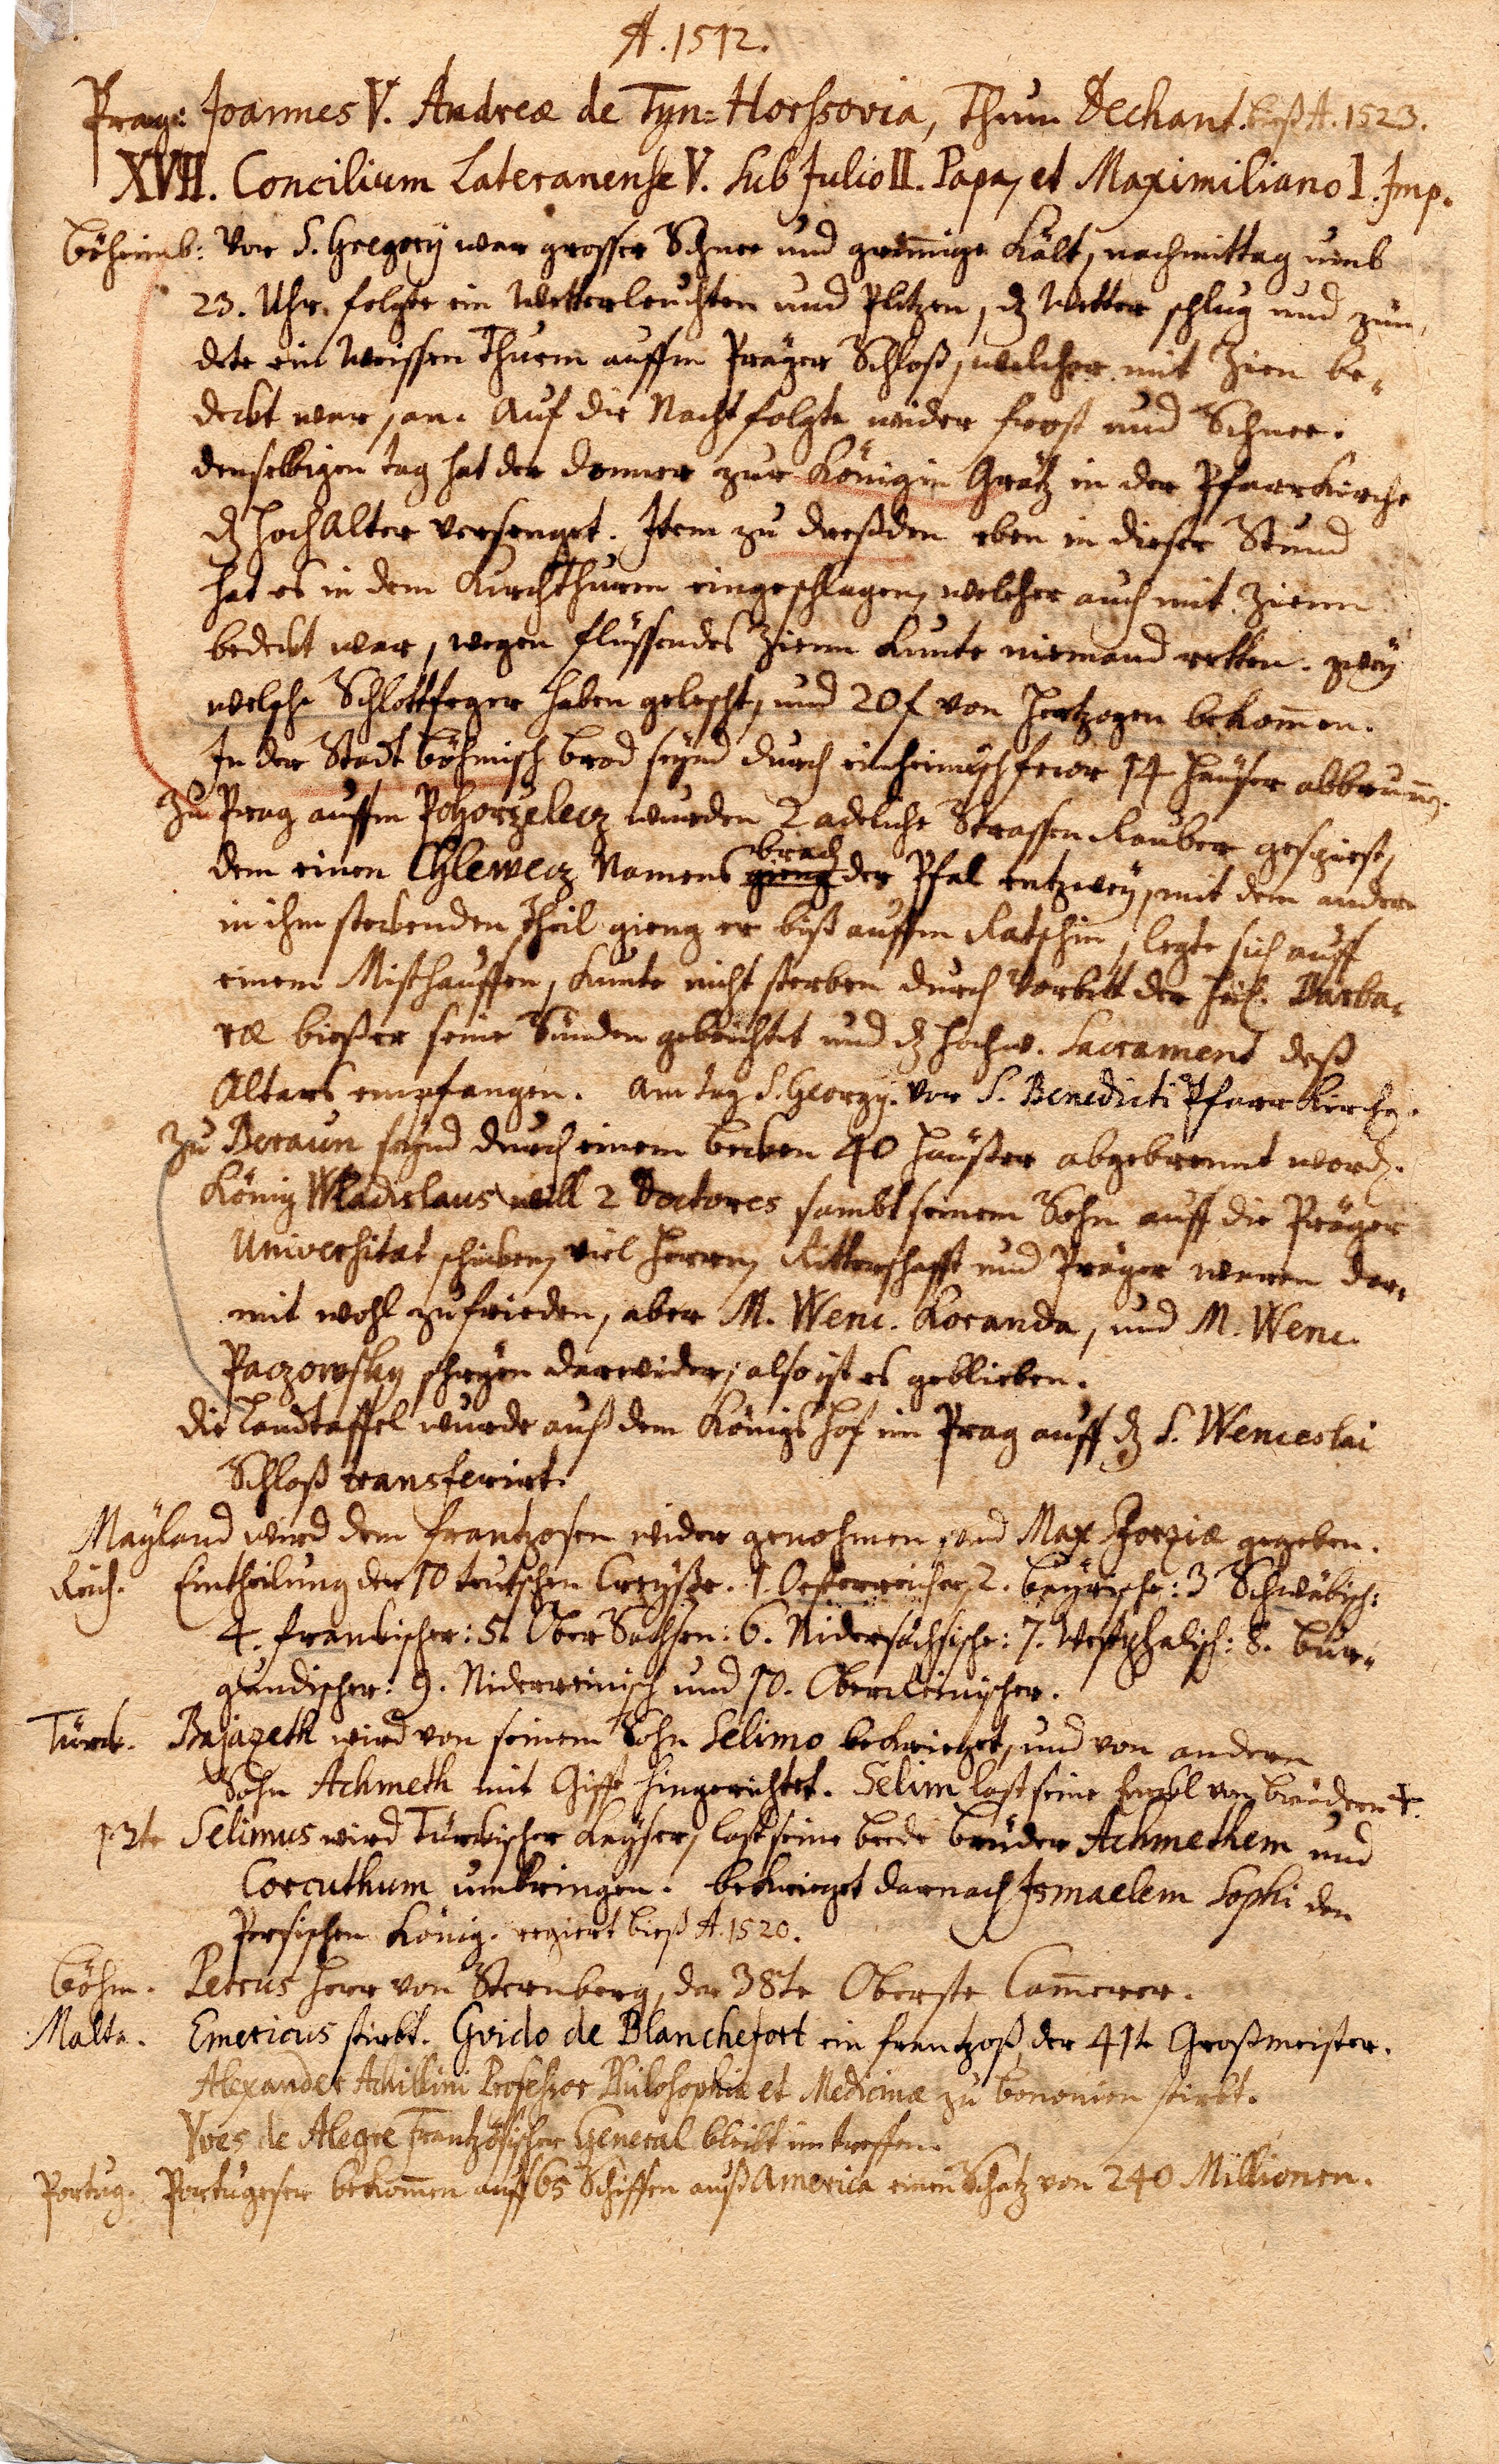 A. 1512.
Prag: Joannes V. Andreæ de Tyn=Horssovia, Thum Dechant. bieß A. 1523.
XVII. Concilium Lateranense V. sub Julio II. Papa, et Maximiliano I. Imp.
Böheimb: Vor S. Gregorij war grosser Schnee und grimige Kält, nachmittag umb
23. Uhr folgte ein Wetterleuchten und Plitzen, dz Wetter schlug und zün,
dete ein Weissen Thurm auffm Präger Schloß, welcher mit Zien be,
deckt war, an. Auf die Nacht folgte wider frost und Schnee.
denselbigen tag hat der donner zur Königin Grätz in der Pfarrkirche
dz Hoch Alter versenget. Item zu dreßden eben in dieser Stund
hat es in dem Kirchthurm eingeschlagen, welcher auch mit Zienn
bedeckt war, wegen flüssendes Zienn kunte niemand retten. zwey
welsche Schlottfeger haben gelescht, und 20 f von Hertzogen bekomen.
In der Stadt Böhmisch brod seynd durch einheimisch feür 14 häuser abbrunnen.
Zu Prag auffm Pohorzelecz wurden 2 adeliche Strassen Rauber gespiest,
dem einen Chlewecz Namens gieng brach der Pfal entzwey, mit dem andern
in ihm steckenden Theil gieng er biß auffm Ratschin, legte sich auff
einem Misthauffen, kunte nicht sterben durch Vorbitt der Heil. Barba,
ræ bieß er seine Sünden gebeichtet und dz Hochw. Sacrament deß
Altars empfangen. Am tag S. Georgij. vor S. Benedicti Pfarr Kirche.
Zu Beraun seynd durch einem becken 40 Häußer abgebrennt word.
König Wladislaus will 2 Doctores sambt seinem Sohn auff die Präger
Universitat schicken, viel Herren, Ritterschafft und Präger waren dar,
mit wohl zufrieden, aber M. Wenc. Koranda, und M. Wenc.
Paczowsky schryen darwider, also ist es geblieben.
die Landtaffel wurde auß dem Königs Hof in Prag auff dz S. Wenceslai
Schloß transferirt.
Mayland wird dem frantzosen wider genohmen, und Max Sforziæ gegeben.
Reich. Eintheilung der 10 teutschen Creyße. 1. Oesterreicher, 2. bayrische: 3 Schwäbisch:
4. franckischer: 5. Ober Sachsen: 6. Nidersächsische: 7. Westphalisch: 8. bur,
gundischer: 9. Niderreinisch und 10. Oberreinischer.
Türck. Bajazeth wird von seinem Sohn Selimo bekrieget, und von andern
Sohn Achmeth mit Gifft hingerichtet. Selim last seine Enckl von brüdern †.
12te Selimus wird Türckischer Kayser, last seine beede brüder Achmethem und
Corcuthum umbringen. bekrieget darnach Ismaelem Sophi den
Persischen König. regiert bieß A. 1520.
Böhm. Petrus Herr von Sternberg, der 38te Oberste Camerer.
Malta. Emericus stirbt. Gvido de Blanchefort ein frantzoß, der 41te Großmeister.
Alexander Achillini Professor Philosophiæ et Medicinæ zu bononien stirbt.
Yves de Alegre Frantzösischer General bleibt im treffen.
Portug. Portugeser bekomen auff 65 Schiffen auß America einen Schatz von 240 Millionen.